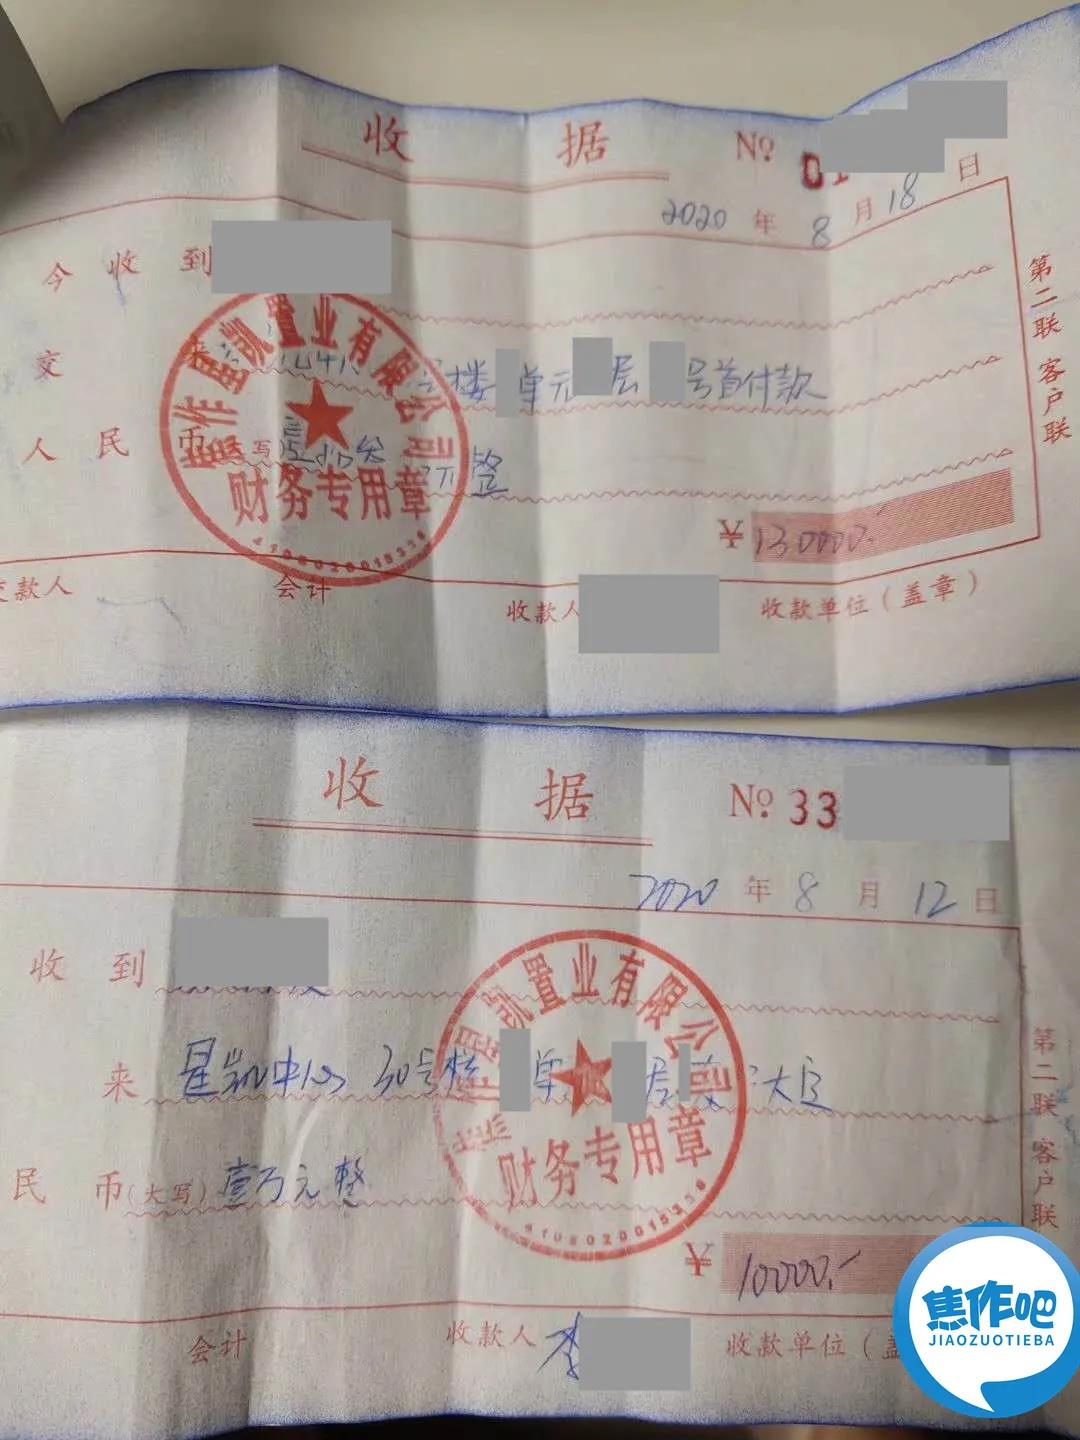 收 据 № 01
2020 年 8 月 18 日
今 收 到
交 来 号楼 单元 层 号首付款
人 民 币 写 元整
¥ 130000.-
交款人 会计 收款人 收款单位(盖章)
第二联 客户联
焦作星凯置业有限公司
财务专用章
收 据 № 33
2020 年 8 月 12 日
收 到
来 星凯中心 30号楼 单 层
民 币(大写) 壹万元整
¥ 10000.-
会计 收款人 李 收款单位(盖
第二联 客户联
作星凯置业有限公司
财务专用章
焦作吧
JIAOZUOTIEBA